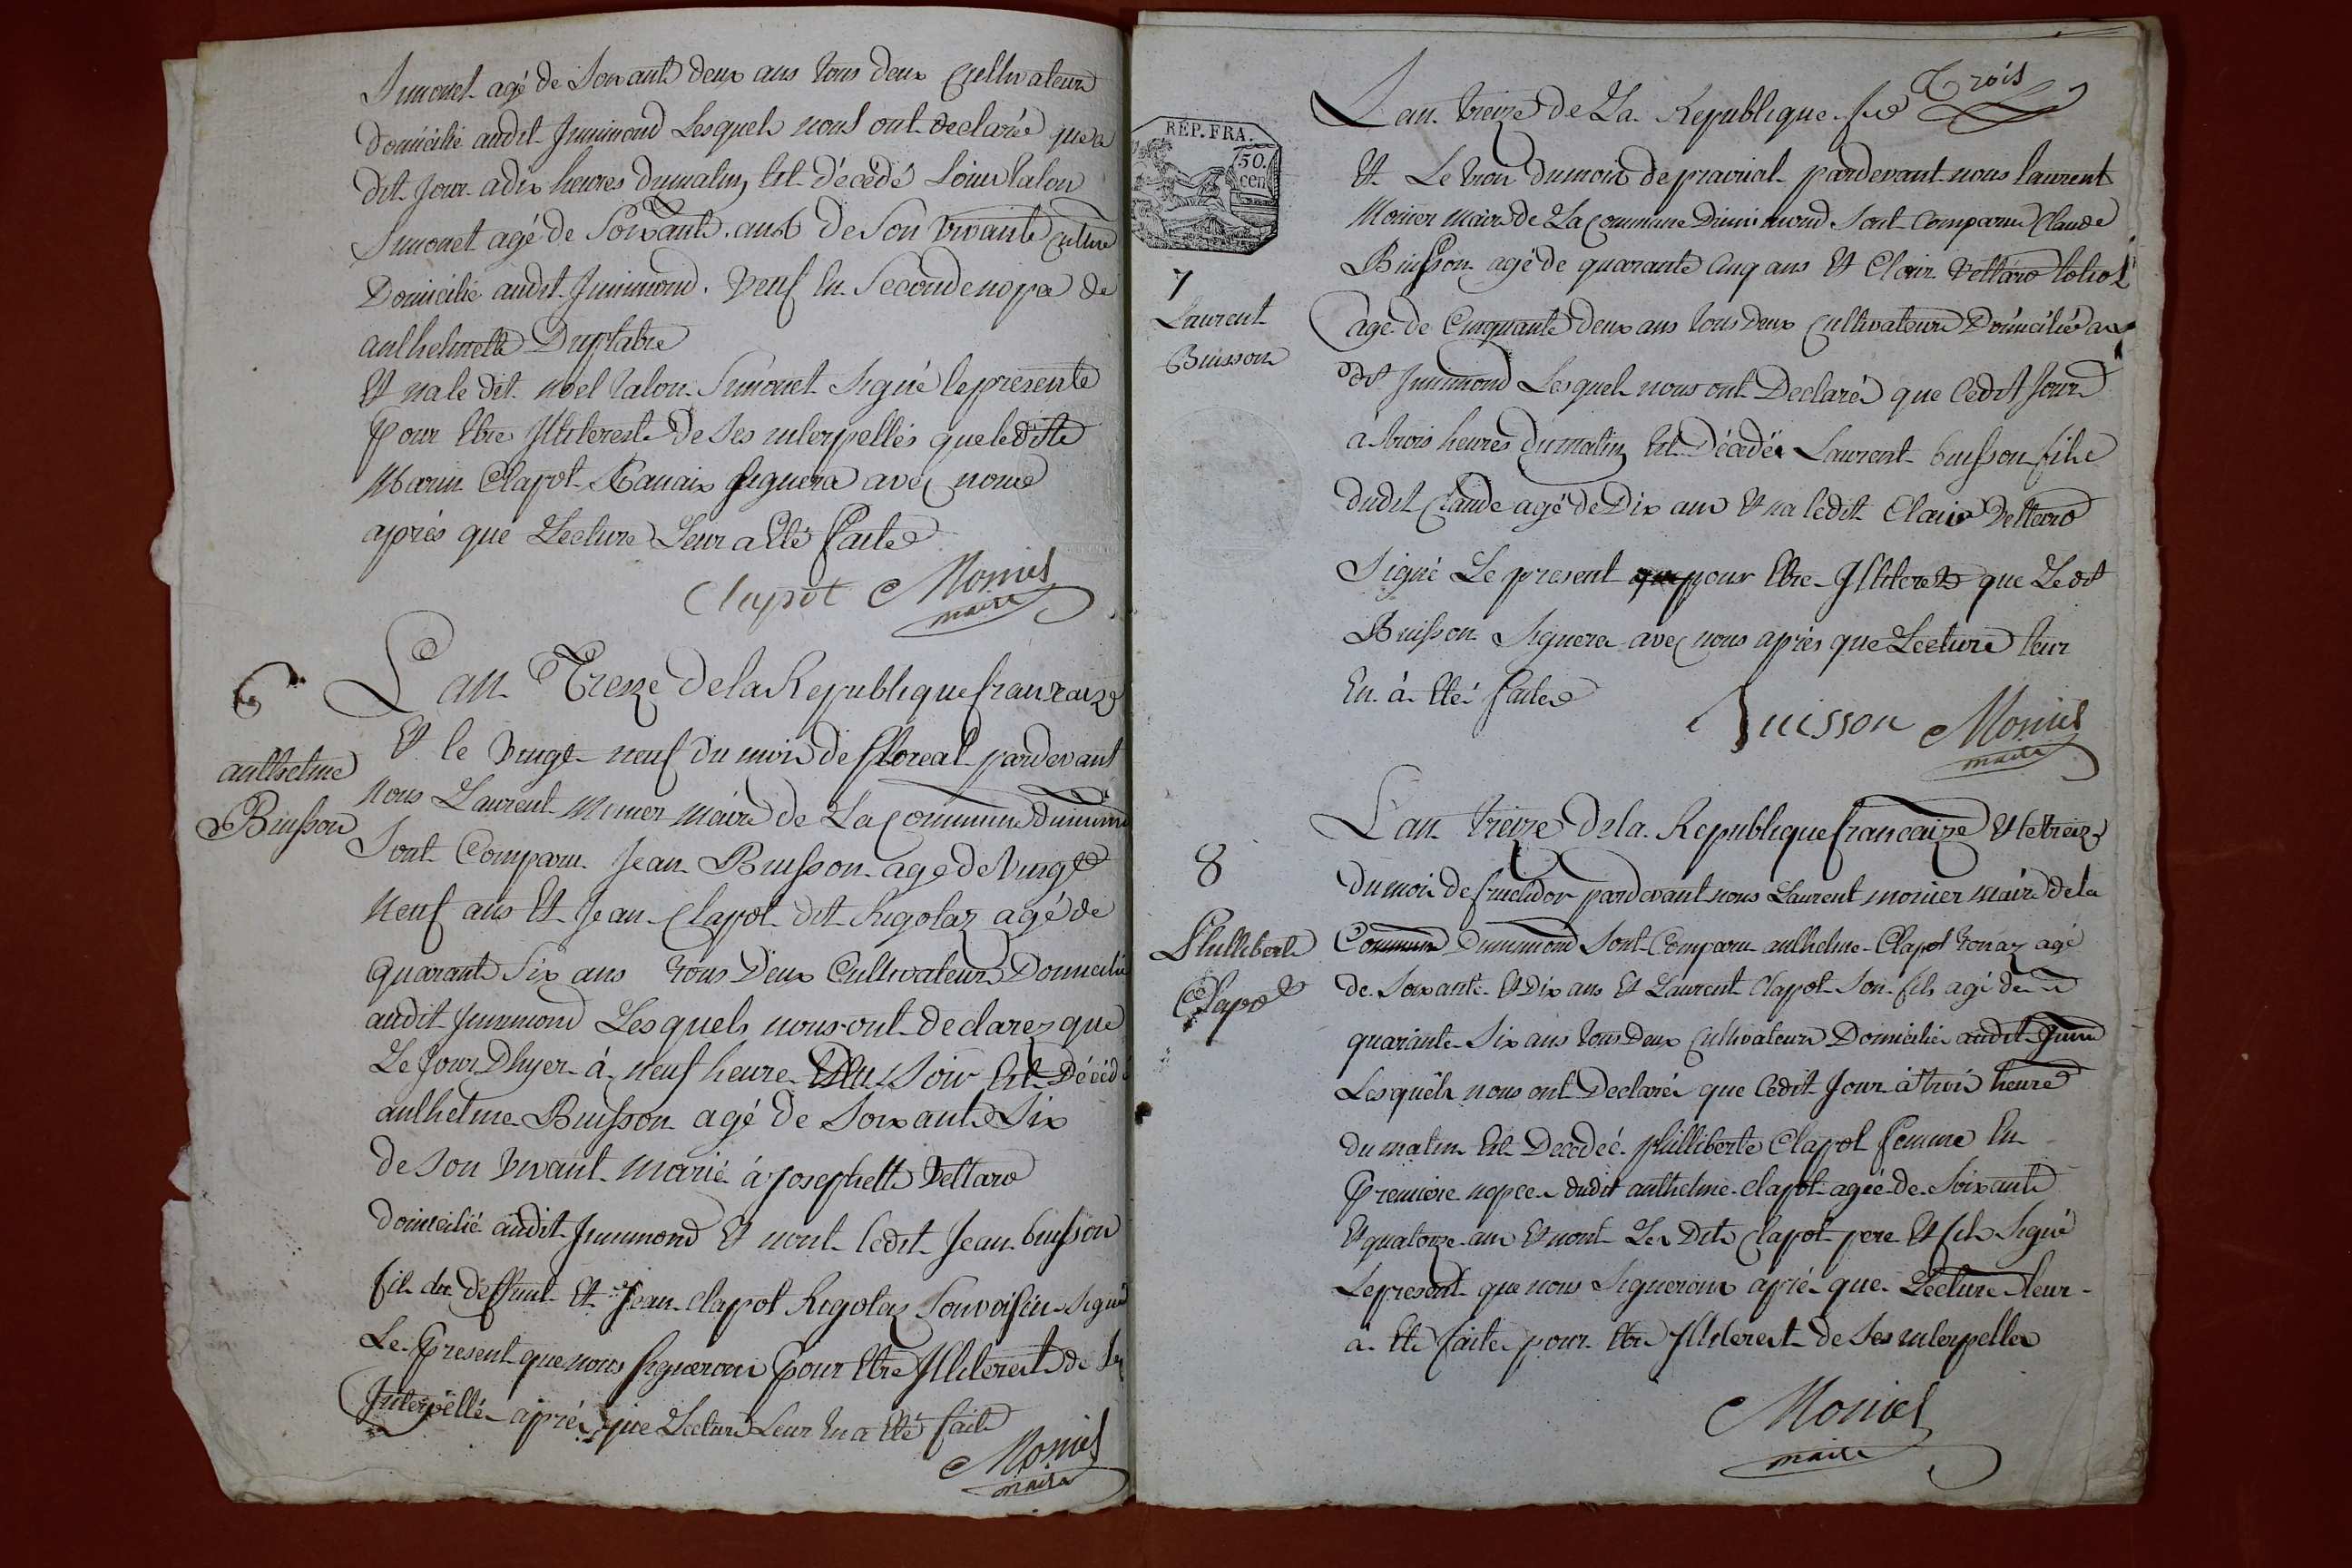 Simonet agé de Soixante deux ans tous deux Cultivateurs
domicilié audit Jnnimond Lesquels nous ont declarée que ce
dit Jour a dix heures dumatin Est décédé Louis talon
Simonet agé de Soixante ans de Son vivante cultivr
Domicilié audit Jnnimond. veuf En Seconde nopce de
anthelmette Duplatre
Et na le dit noel talon Simonet Signé le presente
pour Etre Jlliterest de Ses interpellés que ledite
Marin Clapot Signera avec nous
après que Lecture Leur a Eté faite
Clapot Monier
maire
6
anthelme
Buisson
L'an Treize de la Republique francaize
Et le vingt neuf du mois de floreal pardevant
Nous Laurent Monier Maire de La Commune
Sont Comparu Jean Buisson agé de vingt
Neuf ans Et Jean Clapot dit Rigolaz agé de
quarante Six ans tous Deux Cultivateurs Domicilié
audit Jnnimond Lesquels nous ont declarez que
Le Jour Dhyer à neuf heure Du Soir Est Décédé
anthelme Buisson agé de Soixante Six
de Son vivant marié à Josephette Vettard
domicilié audit Jnnimond Et nont ledit Jean buisson
fils du deffunt Et Jean Clapot Rigolaz Son voisin Signé
Le present que nous Signerons pour Etre Jlliterest de Ses
Jnterpellés après que Lecture Leur En a Eté faite
Monier
maire
Trois
L'an treize de La Republique fse
REP. FRA.
50.
cen
Et Le trois dumois de prairial pardevant nous laurent
Monier maire de La Commune Dinnimond Sont Comparu Claude
Buisson agé de quarante Cinq ans Et Clair Vettard
7
Laurent
Buisson
agé de Cinquante deux ans tous deux Cultivateurs Domicilié au
dit Jnnimond Lesquels nous ont Declaré que Cedit Jour
à trois heures dumatin Est Décédé Laurent buisson fils
dudit Claude agé de Dix ans Et na ledit Clair Vettard
Signé Le present pour Etre Jlliterest que Ledit
Buisson Signera avec nous après que Lecture leur
En à Eté faite
Buisson Monier
maire
L'an treize dela Republique francaize Et le treize
8
du mois de fructidor pardevant nous Laurent monier maire de la
Phillberte
Clapot
Commune Dinnimond Sont Comparu anthelme Clapot tonaz agé
de Soixante Et Dix ans Et Laurent Clapot Son fils agé de
quarante Six ans tous Deux Cultivateurs Domicilié audit Jnnid
Lesquels nous ont Declaré que Cedit Jour à trois heures
du matin Est Decedéé phillberte Clapot femme En
Premiere nopce dudit anthelme Clapot agée de Soixante
Et quatorze ans Et nont Les Dits Clapot pere Et fils Signé
Le present que nous Signerons après que Lecture leur
a Eté faite pour Etre Jlliterest de Ses interpelles
Monier
maire